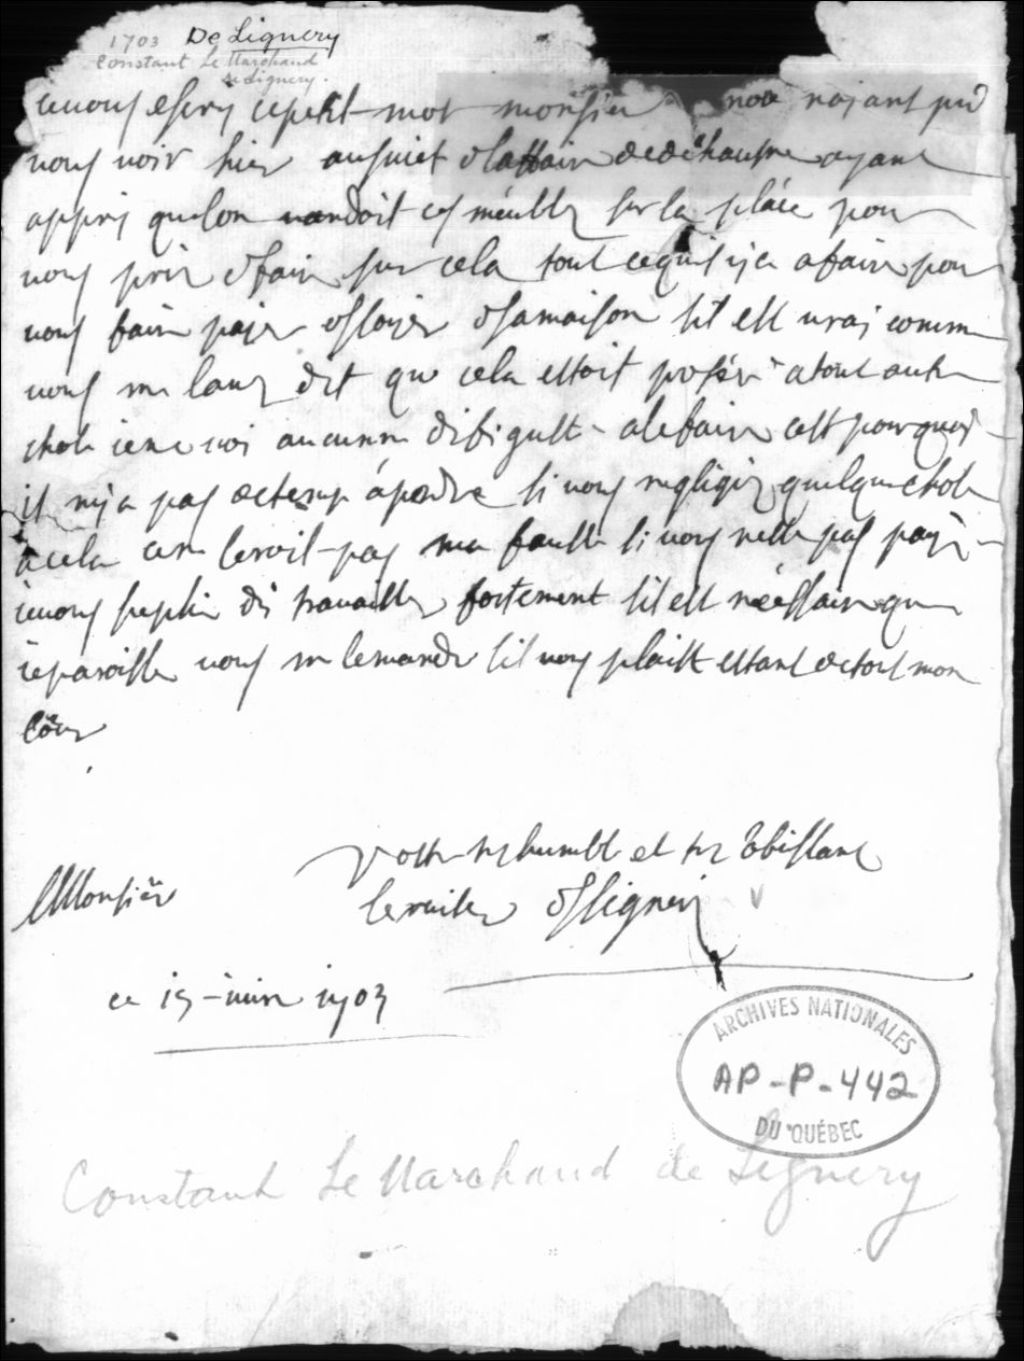 1703 De Lignery
Constant Le Marchand
de Lignery.
ievous escris cepetit mot monsieu najant pu
vous voir hier ausuiet daffair dedechaufne ayant
appris quelon vandoit ces meuble sur la place pour
vous prier defair sur cela tout cequil y a afaire pour
vous faire paier desloyer desamaison sil est vrai comme
vous me lauez dit que cela estoit preferé atout autre
chose iene voi aucunne difigulté alefaire cest pourquoi
il nya pas detemp áperdre si vous negligez quelque chose
acela cene seroit pas ma faulte si vous nette pas payé
ievous suplie di travailler fortement sil est néésaire que
ieparoisse vous me lemandré sil vous plaist estant detout mon
Cöur
Monsieur
Vostre tres humble et tres obissant
serviteur deligneri
ce 15 iuin 1703
ARCHIVES NATIONALES
AP-P-442
DU QUÉBEC
Constant Le Marchand de Lignery